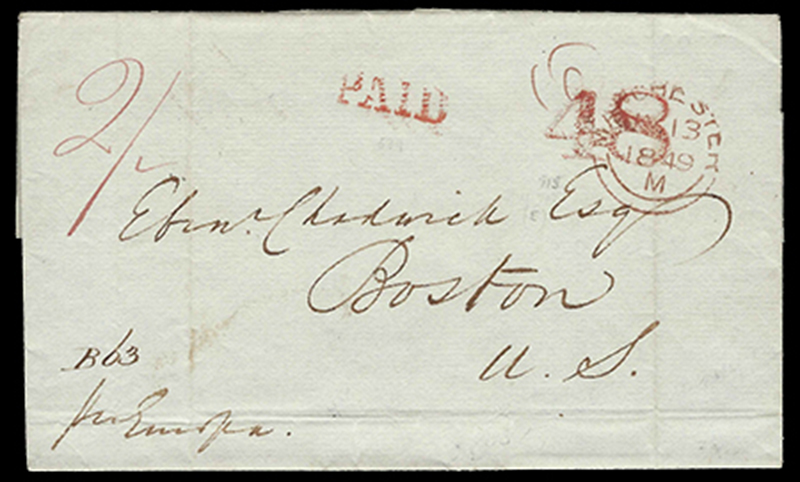 2/
PAID
48
CHESTER
13
1849
M
Ebenr. Chadwick Esqr
Boston
U. S.
B63
per Europa.